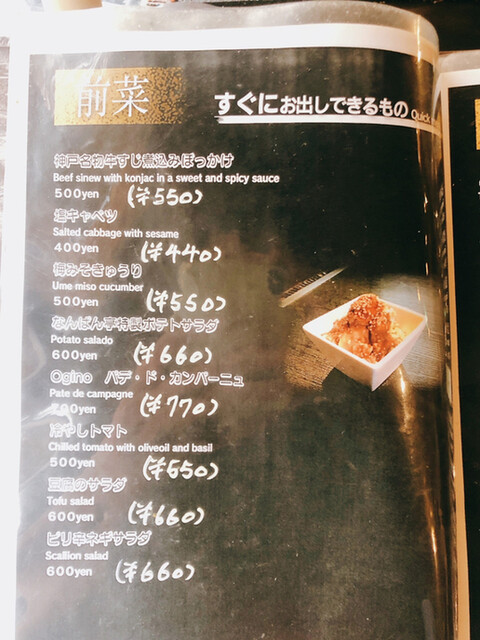 前菜
すぐにお出しできるもの Quick
神戸名物牛すじ煮込みぼっかけ
Beef sinew with konjac in a sweet and spicy sauce
500yen (¥550)
塩キャベツ
Salted cabbage with sesame
400yen (¥440)
梅みそきゅうり
Ume miso cucumber
500yen (¥550)
なんばん亭特製ポテトサラダ
Potato salado
600yen (¥660)
Ogino パテ・ド・カンパーニュ
Pate de campagne
700yen (¥770)
冷やしトマト
Chilled tomato with oliveoil and basil
500yen (¥550)
豆腐のサラダ
Tofu salad
600yen (¥660)
ピリ辛ネギサラダ
Scallion salad
600yen (¥660)